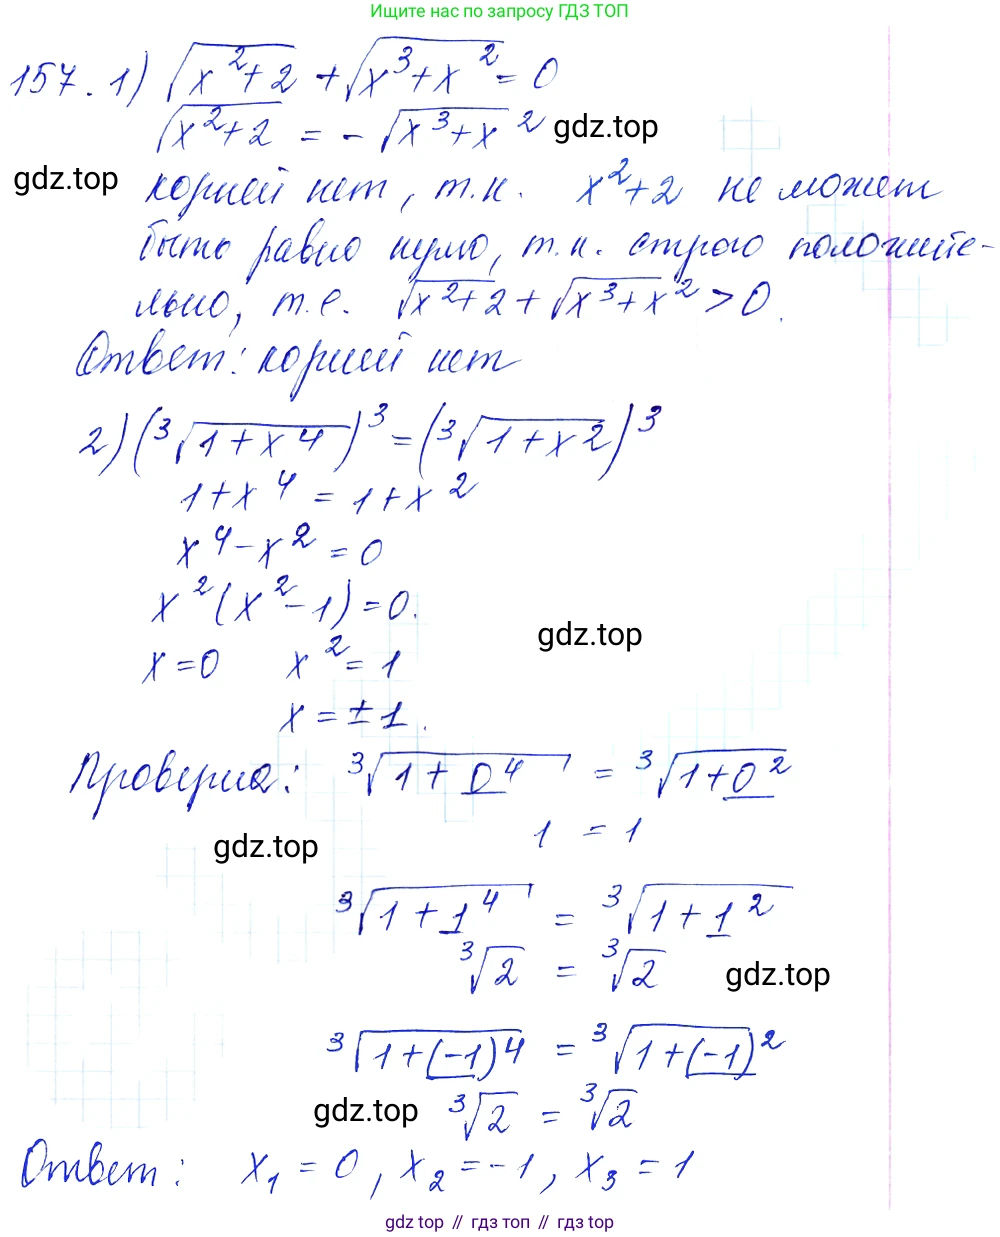 Ищите нас по запросу ГДЗ ТОП
157. 1) √(x²+2) + √(x³+x²) = 0
√(x²+2) = - √(x³+x²)
gdz.top
gdz.top
корней нет, т.к. x²+2 не может
быть равно нулю, т.к. строго положите-
льно, т.е. √(x²+2) + √(x³+x²) > 0.
Ответ: корней нет
2) (³√(1+x⁴))³ = (³√(1+x²))³
1+x⁴ = 1+x²
x⁴-x² = 0
x²(x²-1) = 0.
gdz.top
x=0 x² = 1
x = ±1.
Проверка: ³√(1+0⁴) = ³√(1+0²)
1 = 1
gdz.top
³√(1+1⁴) = ³√(1+1²)
³√2 = ³√2
gdz.top
³√(1+(-1)⁴) = ³√(1+(-1)²)
gdz.top
³√2 = ³√2
Ответ: x₁ = 0, x₂ = -1, x₃ = 1
gdz top // гдз топ // гдз top